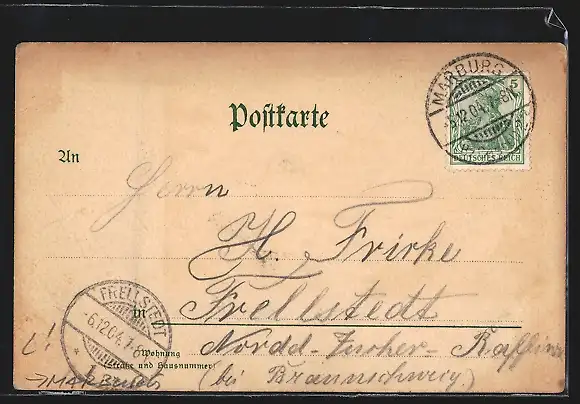 Postkarte
MARBURG
5
5.12.04. 8N
DEUTSCHES REICH
An
Herrn
H. Frirke
in Frellstedt
FRELLSTEDT
6.12.04.
Wohnung
(Straße und Hausnummer)
Nordd-Zucker-Raffinerie
(bei Braunschweig)
L!
→MARBURG